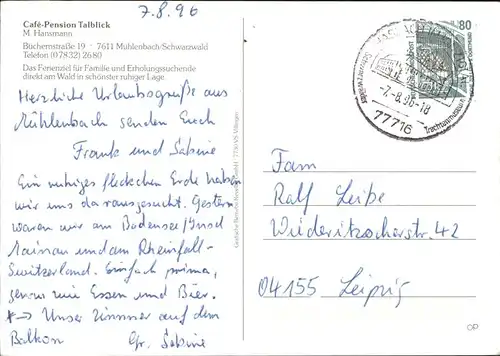 7.8.96
Café-Pension Talblick
M. Hansmann
Büchernstraße 19 · 7611 Mühlenbach/Schwarzwald
Telefon (07832) 2680
Das Ferienziel für Familie und Erholungssuchende
direkt am Wald in schönster ruhiger Lage
Herzliche Urlaubsgrüße aus
Mühlenbach senden Euch
Frank und Sabine
Ein ruhiges fleckchen Erde haben
wir uns da rausgesucht. Gestern
waren wir am Bodensee/Insel
Mainau und am Rheinfall-
Switzerland. Einfach prima,
genau wie Essen und Bier.
*→ Unser Zimmer auf dem
Balkon Gr. Sabine
80
-7.-8.96-18
77716
Trachtenmuseum
Fam
Ralf Leiße
Wiederitzscherstr. 42
04155 Leipzig